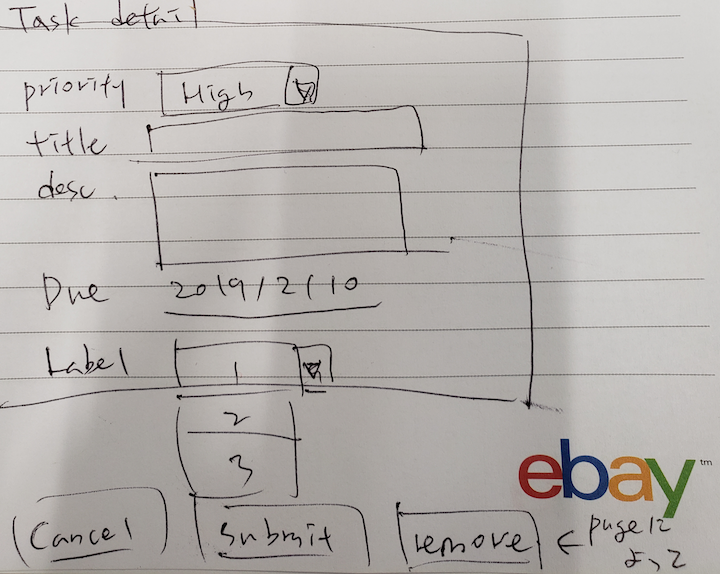 Task detail
priority High
title
desc.
Due 2019/2/10
Label 1
2
3
ebay™
Cancel Submit remove ← page に
よって